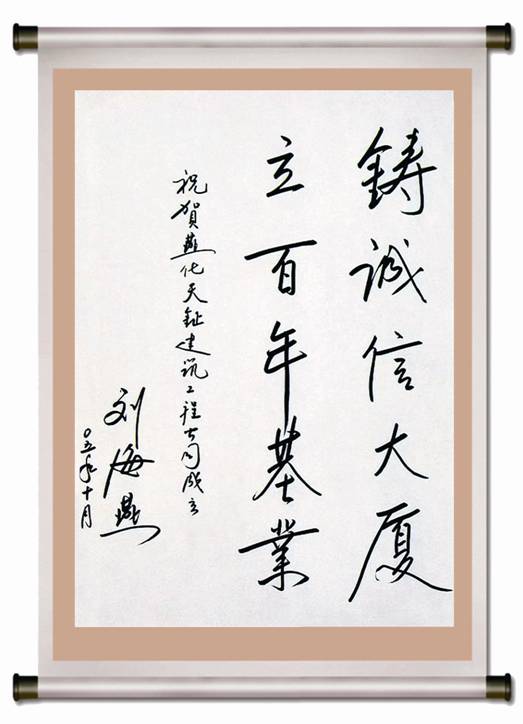 鑄诚信大厦
立百年基業
祝賀燕化天鉦建筑工程公司成立
刘海燕
〇五年十月